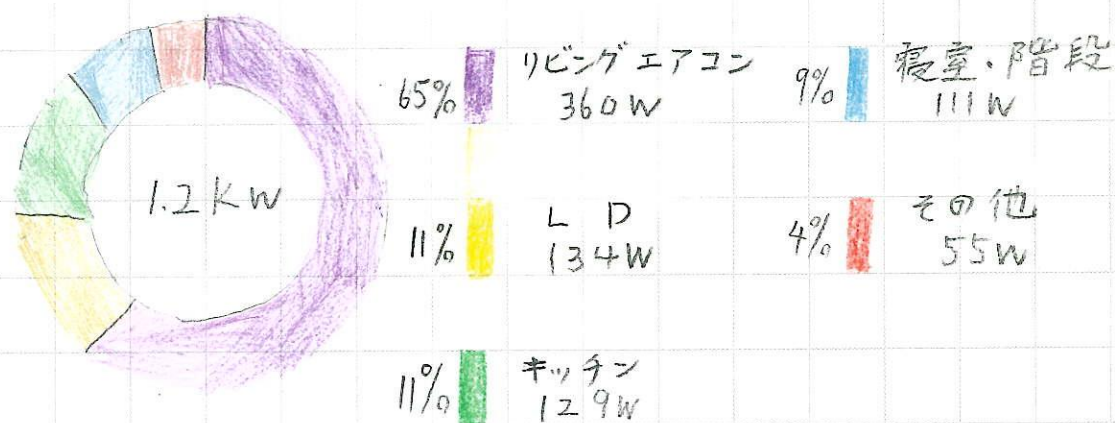 1.2KW
65%
リビングエアコン
360W
11%
LD
134W
11%
キッチン
129W
9%
寝室・階段
111W
4%
その他
55W